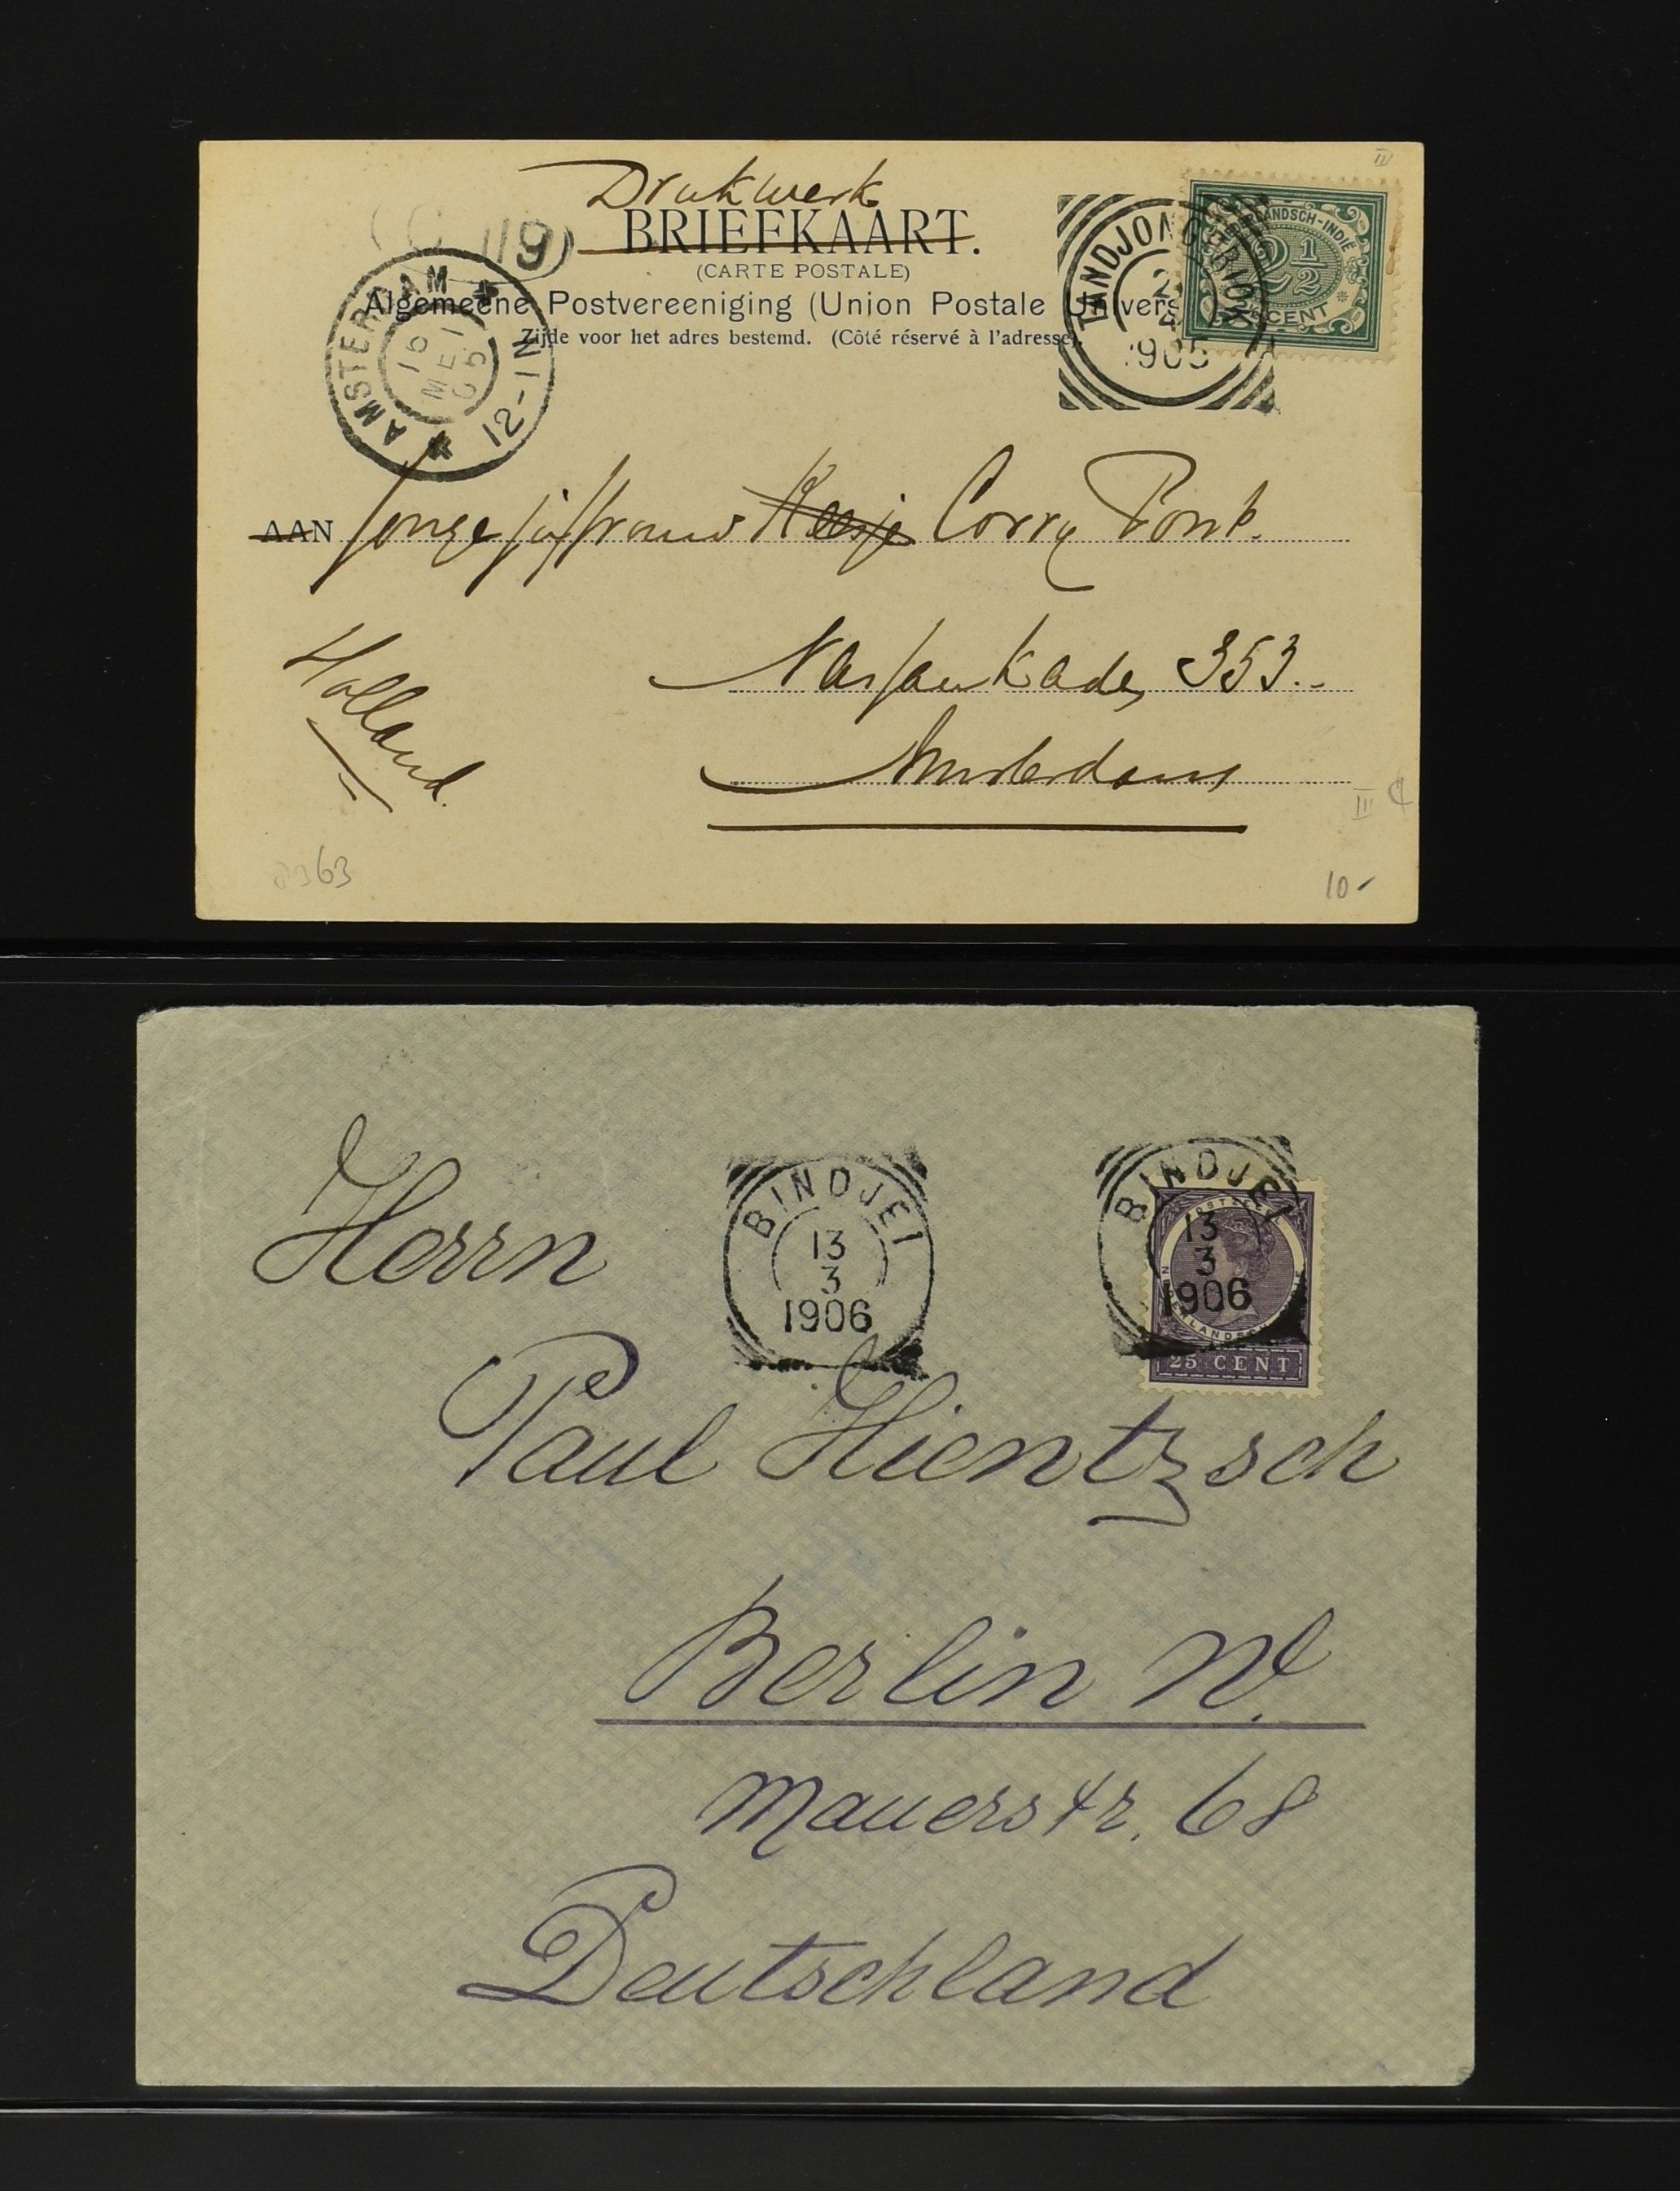 Drukwerk
BRIEFKAART.
(CARTE POSTALE)
Algemeene Postvereeniging (Union Postale Univers
Zijde voor het adres bestemd. (Côté réservé à l'adresse).
119
AMSTERDAM
16
MEI
05
12-1N
TANDJONG PRIOK
4
1905
NEDERLANDSCH-INDIË
2 1/2
CENT
III
AAN Jonge juffrouw Keesje Corry Pont.
Nassaukade 353.
Amsterdam
Holland.
III
63
10-
BINDJEI
13
3
1906
BINDJEI
13
3
1906
POSTZEGEL
25 CENT
Herrn
Paul Hientzsch
Berlin W.
Mauerstr. 68
Deutschland